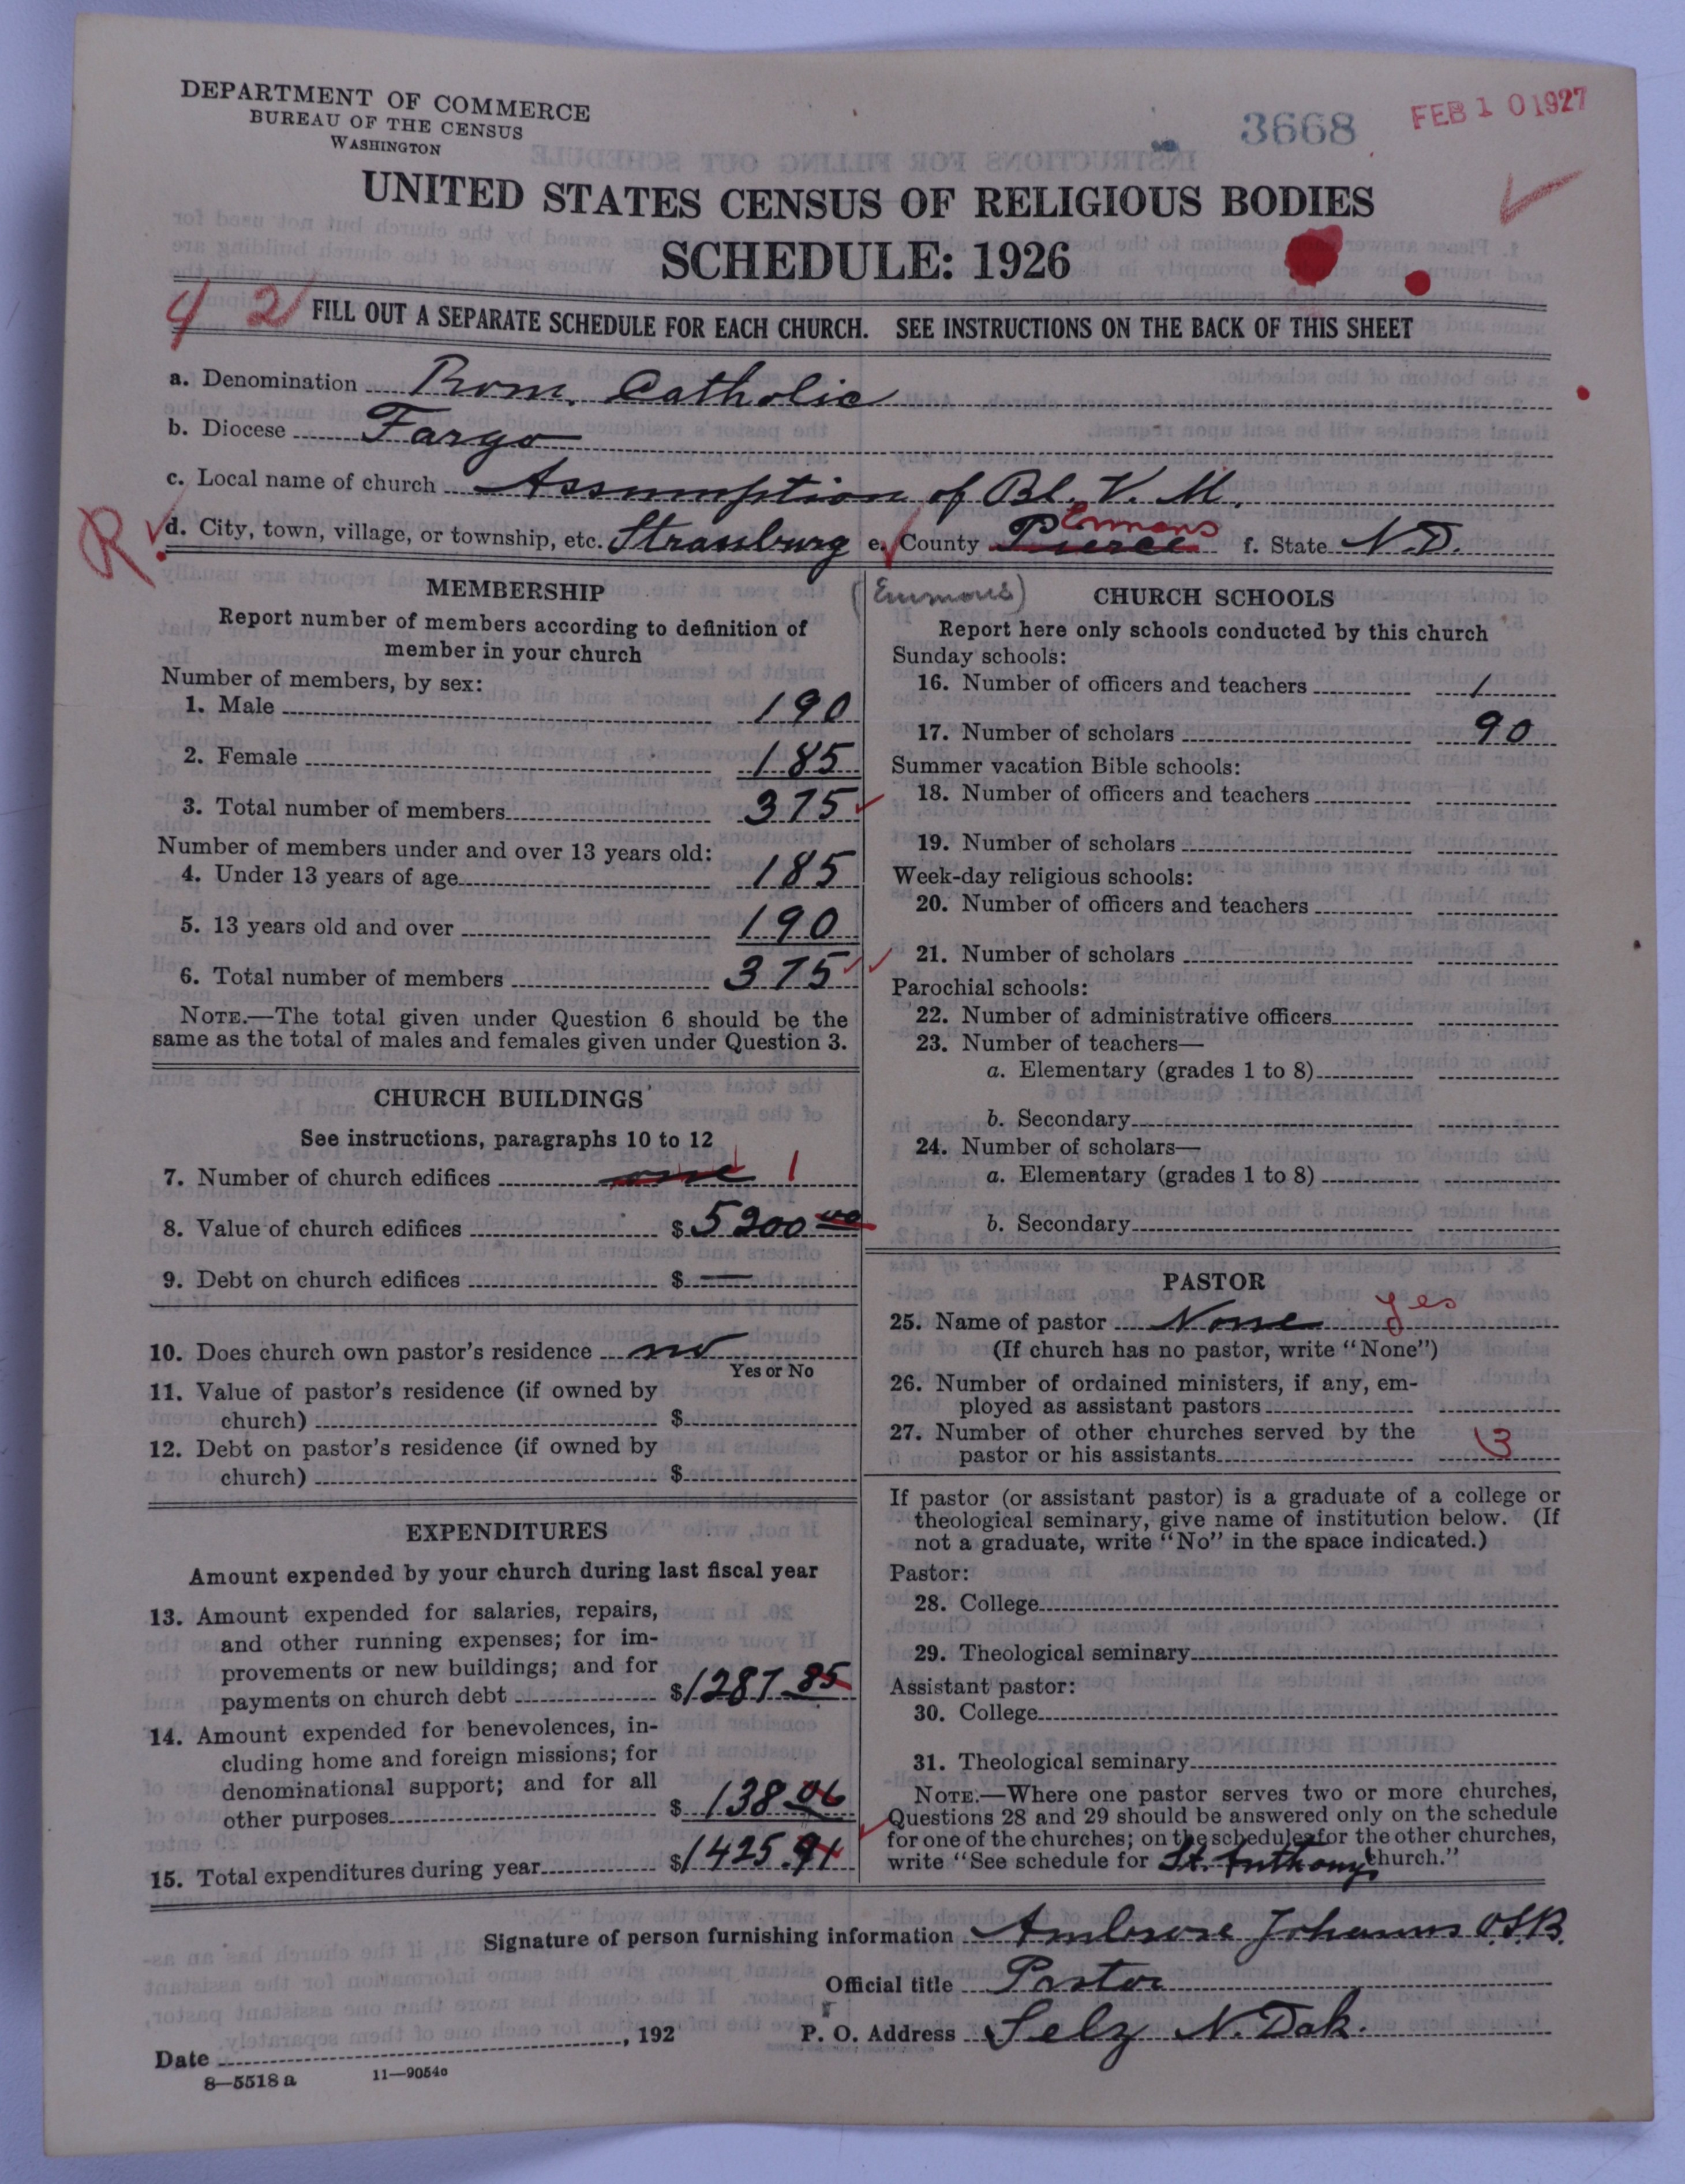 DEPARTMENT OF COMMERCE
BUREAU OF THE CENSUS
WASHINGTON
3668
FEB 10 1927
UNITED STATES CENSUS OF RELIGIOUS BODIES
SCHEDULE: 1926
4 2
FILL OUT A SEPARATE SCHEDULE FOR EACH CHURCH. SEE INSTRUCTIONS ON THE BACK OF THIS SHEET
a. Denomination Rom. Catholic
b. Diocese Fargo
c. Local name of church Assumption of Bl. V. M.
R d. City, town, village, or township, etc. Strassburg e. County Pierce Emmons f. State N.D.
(Emmons)
MEMBERSHIP
Report number of members according to definition of
member in your church
Number of members, by sex:
1. Male 190
2. Female 185
3. Total number of members 375
Number of members under and over 13 years old:
4. Under 13 years of age 185
5. 13 years old and over 190
6. Total number of members 375
NOTE.—The total given under Question 6 should be the
same as the total of males and females given under Question 3.
CHURCH BUILDINGS
See instructions, paragraphs 10 to 12
7. Number of church edifices one 1
8. Value of church edifices $ 5200 00
9. Debt on church edifices $ —
10. Does church own pastor's residence no
Yes or No
11. Value of pastor's residence (if owned by
church) $
12. Debt on pastor's residence (if owned by
church) $
EXPENDITURES
Amount expended by your church during last fiscal year
13. Amount expended for salaries, repairs,
and other running expenses; for im-
provements or new buildings; and for
payments on church debt $ 1287 85
14. Amount expended for benevolences, in-
cluding home and foreign missions; for
denominational support; and for all
other purposes $ 138 06
15. Total expenditures during year $ 1425.91
CHURCH SCHOOLS
Report here only schools conducted by this church
Sunday schools:
16. Number of officers and teachers 1
17. Number of scholars 90
Summer vacation Bible schools:
18. Number of officers and teachers
19. Number of scholars
Week-day religious schools:
20. Number of officers and teachers
21. Number of scholars
Parochial schools:
22. Number of administrative officers
23. Number of teachers—
a. Elementary (grades 1 to 8)
b. Secondary
24. Number of scholars—
a. Elementary (grades 1 to 8)
b. Secondary
PASTOR
25. Name of pastor None yes
(If church has no pastor, write "None")
26. Number of ordained ministers, if any, em-
ployed as assistant pastors
27. Number of other churches served by the
pastor or his assistants 3
If pastor (or assistant pastor) is a graduate of a college or
theological seminary, give name of institution below. (If
not a graduate, write "No" in the space indicated.)
Pastor:
28. College
29. Theological seminary
Assistant pastor:
30. College
31. Theological seminary
NOTE.—Where one pastor serves two or more churches,
Questions 28 and 29 should be answered only on the schedule
for one of the churches; on the schedules for the other churches,
write "See schedule for St. Anthony's church."
Signature of person furnishing information Ambrose Johanns O.S.B.
Official title Pastor
Date , 192
P. O. Address Selz N. Dak.
8—5518 a 11—9054c